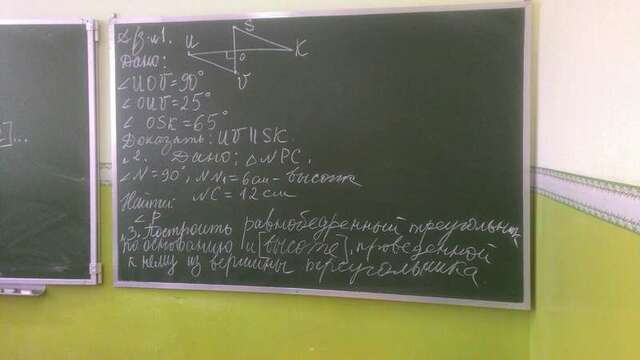 д/з №1.
S
U
K
O
V
Дано:
∠UOV=90°
∠OUV=25°
∠OSK=65°
Доказать: UV || SK.
№2. Дано: △NPC,
∠N=90°, NN₁=6см - высота
NC=12см
Найти:
∠P
№3. Построить равнобедренный треугольник
по основанию и [высоте], проведенной
к нему из вершины треугольника.
]...